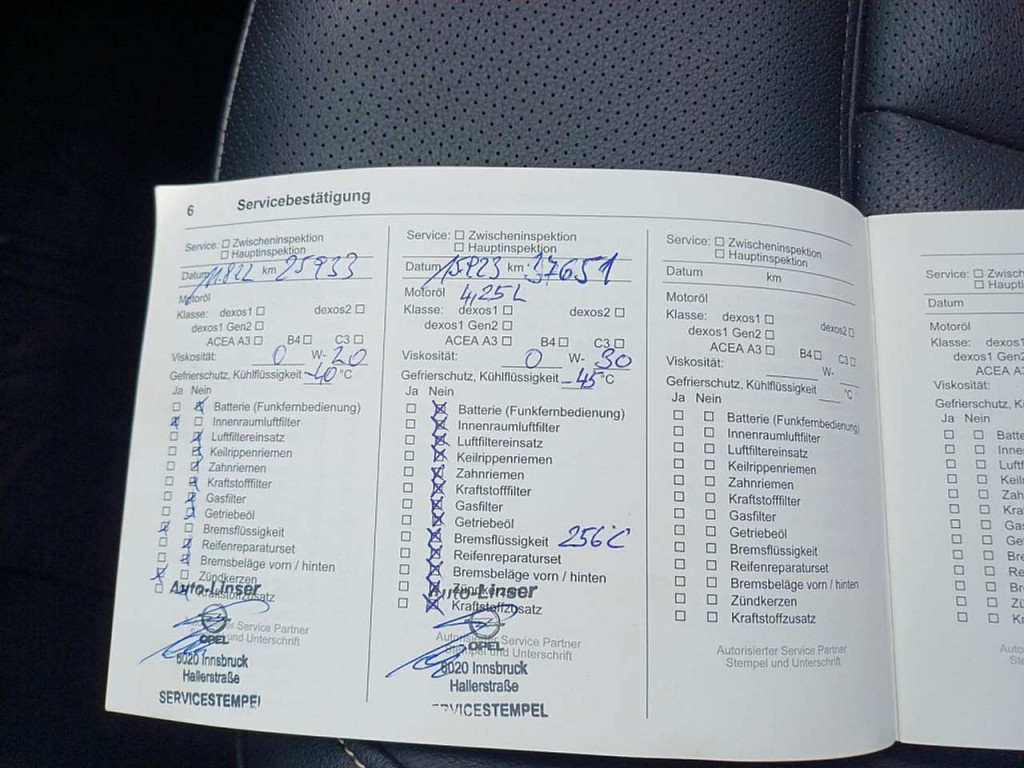 6 Servicebestätigung
Service: ☐ Zwischeninspektion
☐ Hauptinspektion
Datum 11.822 km 25933
Motoröl
Klasse: dexos1 ☐ dexos2 ☐
dexos1 Gen2 ☐
ACEA A3 ☐ B4 ☐ C3 ☐
Viskosität: 0 W- 20
Gefrierschutz, Kühlflüssigkeit -40 °C
Ja Nein
☐ ☒ Batterie (Funkfernbedienung)
☒ ☐ Innenraumluftfilter
☐ ☒ Luftfiltereinsatz
☐ ☒ Keilrippenriemen
☐ ☒ Zahnriemen
☐ ☒ Kraftstofffilter
☐ ☒ Gasfilter
☐ ☒ Getriebeöl
☒ ☐ Bremsflüssigkeit
☐ ☒ Reifenreparaturset
☐ ☒ Bremsbeläge vorn / hinten
☒ ☐ Zündkerzen
☐ ☒ Kraftstoffzusatz
Auto-Linser
OPEL
Service Partner
und Unterschrift
6020 Innsbruck
Hallerstraße
SERVICESTEMPEL
Service: ☐ Zwischeninspektion
☐ Hauptinspektion
Datum km 37651
Motoröl 4,25L
Klasse: dexos1 ☐ dexos2 ☐
dexos1 Gen2 ☐
ACEA A3 ☐ B4 ☐ C3 ☐
Viskosität: 0 W- 30
Gefrierschutz, Kühlflüssigkeit -45 °C
Ja Nein
☐ ☒ Batterie (Funkfernbedienung)
☐ ☒ Innenraumluftfilter
☐ ☒ Luftfiltereinsatz
☐ ☒ Keilrippenriemen
☐ ☒ Zahnriemen
☐ ☒ Kraftstofffilter
☐ ☒ Gasfilter
☐ ☒ Getriebeöl
☐ ☒ Bremsflüssigkeit 256°C
☐ ☒ Reifenreparaturset
☐ ☒ Bremsbeläge vorn / hinten
☐ ☒ Zündkerzen
☐ ☒ Kraftstoffzusatz
Auto-Linser
OPEL
Autorisierter Service Partner
Stempel und Unterschrift
6020 Innsbruck
Hallerstraße
SERVICESTEMPEL
Service: ☐ Zwischeninspektion
☐ Hauptinspektion
Datum km
Motoröl
Klasse: dexos1 ☐ dexos2 ☐
dexos1 Gen2 ☐
ACEA A3 ☐ B4 ☐ C3 ☐
Viskosität: W-
Gefrierschutz, Kühlflüssigkeit °C
Ja Nein
☐ ☐ Batterie (Funkfernbedienung)
☐ ☐ Innenraumluftfilter
☐ ☐ Luftfiltereinsatz
☐ ☐ Keilrippenriemen
☐ ☐ Zahnriemen
☐ ☐ Kraftstofffilter
☐ ☐ Gasfilter
☐ ☐ Getriebeöl
☐ ☐ Bremsflüssigkeit
☐ ☐ Reifenreparaturset
☐ ☐ Bremsbeläge vorn / hinten
☐ ☐ Zündkerzen
☐ ☐ Kraftstoffzusatz
Autorisierter Service Partner
Stempel und Unterschrift
Service: ☐ Zwisch
☐ Haupti
Datum
Motoröl
Klasse: dexos1
dexos1 Gen2
ACEA A
Viskosität:
Gefrierschutz, K
Ja Nein
☐ ☐ Batte
☐ ☐ Inne
☐ ☐ Luft
☐ ☐ Keil
☐ ☐ Zah
☐ ☐ Kra
☐ ☐ Gas
☐ ☐ Ge
☐ ☐ Br
☐ ☐ Re
☐ ☐ B
☐ ☐ Z
☐ ☐ K